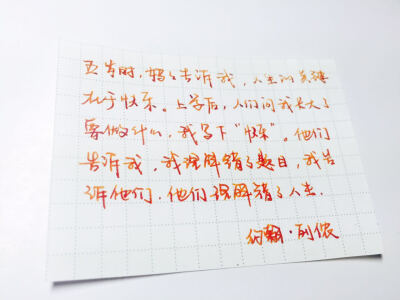 五岁时,妈妈告诉我,人生的关键
在于快乐。上学后,人们问我长大了
要做什么,我写下“快乐”。他们
告诉我,我理解错了题目,我告
诉他们,他们理解错了人生.
约翰·列侬